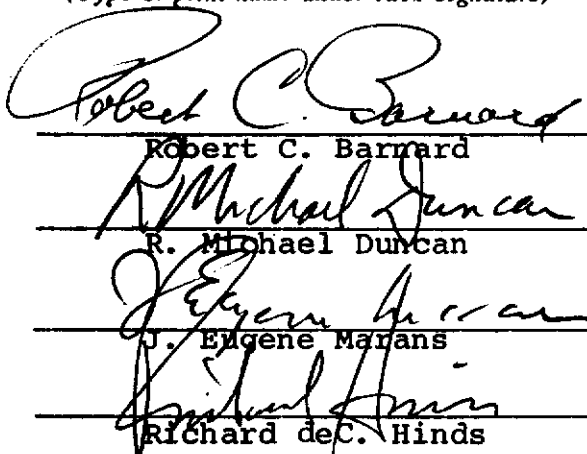 (Type or print name under each signature)
Robert C. Barnard
Robert C. Barnard
R. Michael Duncan
R. Michael Duncan
J. Eugene Marans
J. Eugene Marans
Richard deC. Hinds